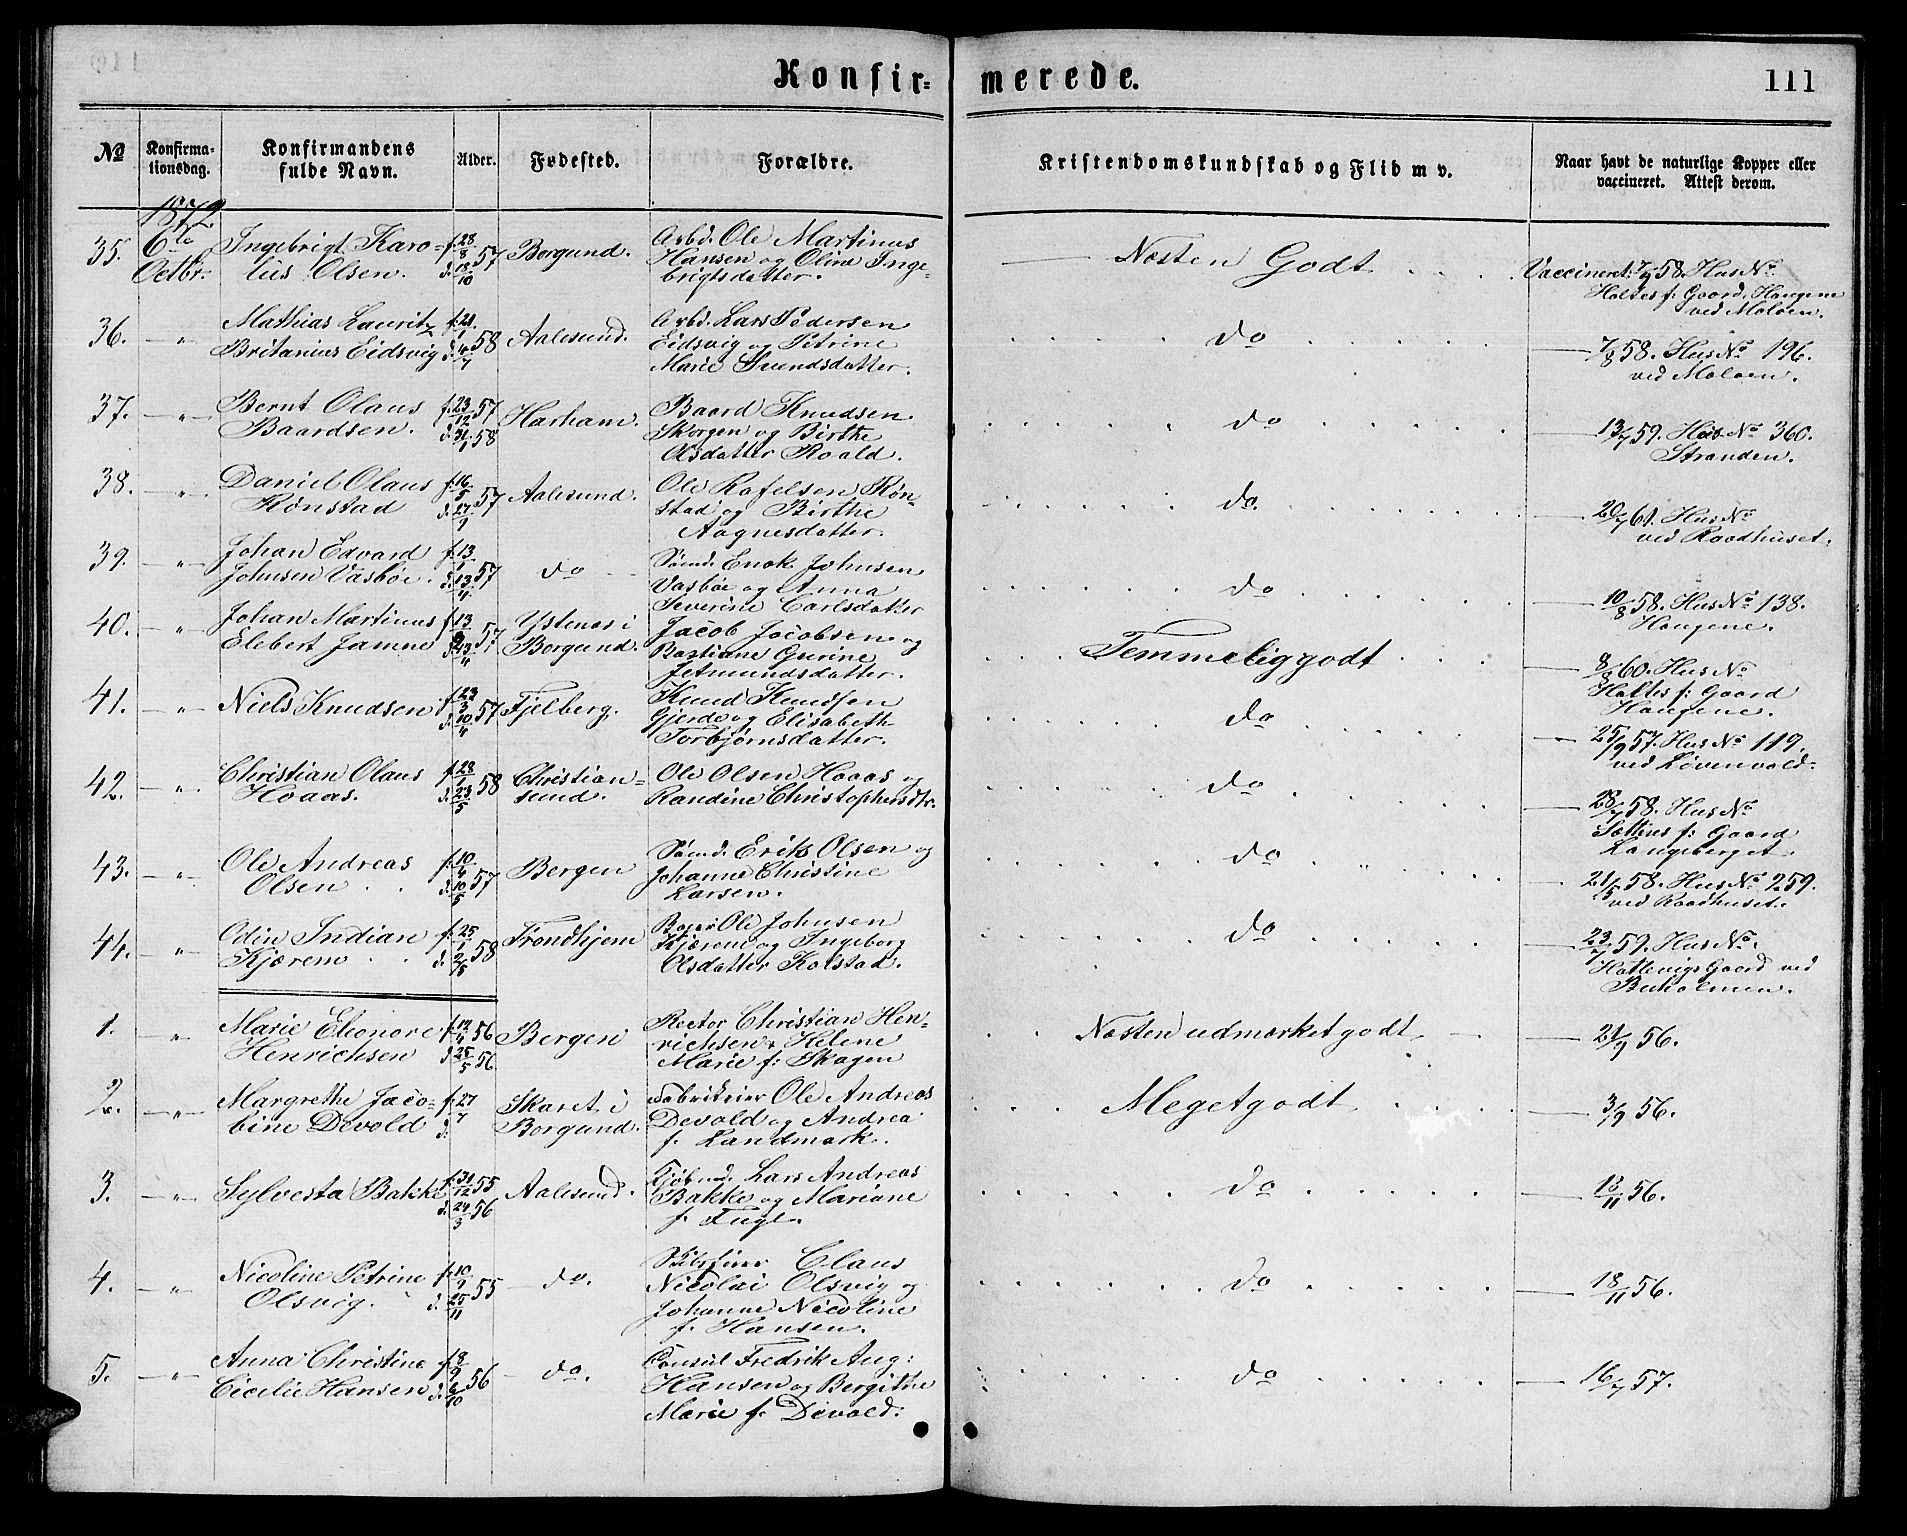 Konfir- merede. 111
№ Konfirma-tionsdag. Konfirmandens fulde Navn. Alder. Fødested. Forældre. Kristendomskundskab og Flid m v. Naar havt de naturlige Kopper eller vaccineret. Attest derom.
1872
35. 6te Ingebrigt Karo- f. 28/8 57 Borgund. Arbd. Ole Martinus Næsten Godt Vaccineret 58. Hus No
Octbr. lius Olsen. d. 18/10 Hansen og Oline Inge- Holtes f: Gaard, Haugene
brigtsdatter. ved Moloen.
36. " Mathias Lauritz f. 21/1 58 Aalesund. Arbd. Lars Pedersen do 7/8 58. Hus No 196.
Britanius Eidsvig d. 4/7 Eidsvig og Petrine ved Moloen.
Marie Svendsdatter.
37. " Bernt Olaus f. 23/12 57 Harham. Baard Knudsen do 13/7 59. Hus No 360.
Baardsen. d. 31/1 58 Skorgen og Birthe Stranden.
Olsdatter Roald.
38. " Daniel Olaus f. 16/5 57 Aalesund. Ole Rafelsen Røn- do 20/7 61. Hus No
Rønstad d. 27/9 stad og Birthe ved Raadhuset.
Aagnesdatter.
39. " Johan Edvard f. 13/1 57 do Sømd. Enok Johnsen do 10/8 58. Hus No 138.
Johnsen Vasbøe. d. 13/4 Vasbøe og Anna Haugene.
Severine Carlsdatter
40. " Johan Martinus f. 13 57 Ystenes i Jacob Jacobsen og Temmelig godt 8/8 60. Hus No
Elebert Jamne d. 13/4 Borgund. Bastiane Gurine Holtes f: Gaard
Jetmundsdatter. Haugene.
41. " Niels Knudsen f. 23/3 57 Fjelberg. Knud Knudsen do 25/9 57. Hus No 119.
d. 10/4 Gjerde og Elisabeth ved Løvenvold.
Torbjørnsdatter.
42. " Christian Olaus f. 28/1 58 Christian- Ole Olsen Hoaas og do 28/7 58. Hus No
Hoaas. d. 23/5 sund. Randine Christophersdtr. Sættius f: Gaard
Langeberget.
43. " Ole Andreas f. 10/4 57 Bergen Sømd. Erik Olsen og do 21/5 58. Hus No 259.
Olsen d. 10/5 Johanne Christine ved Raadhuset.
Larsen.
44. " Odin Indian f. 25/1 58 Trondhjem Bager Ole Johnsen do 23/7 59. Hus No
Kjærem d. 2/5 Kjærem og Ingeborg Hatlevigs Gaard ved
Olsdatter Kolstad. Buholmen.
1. " Marie Eleonore f. 12/4 56 Bergen Rector Christian Hen- Næsten udmærket godt 21/9 56.
Henrichsen d. 25/5 56 richsen & Helene
Marie f. Skagen
2. " Margrethe Jaco- f. 27/7 Skaret i Fabrikeier Ole Andreas Meget godt 3/9 56.
bine Devold d. Borgund. Devold og Andrea
f. Landmark.
3. " Sylvesta Bakke f. 31/12 55 Aalesund. Kjøbmd. Lars Andreas do 18/11 56.
d. 24/3 56 Bakke og Mariane
f. Fugl.
4. " Nicoline Petrine f. 10/9 55 do. Claus do 18/11 56.
Olsvig. d. 25/11 Nicolai Olsvig og
Johanne Nicoline
f. Hansen.
5. " Anna Christine f. 8/9 56 do. Consul Fredrik Aug: do 16/7 57.
Cicelie Hansen d. 6/10 Hansen og Bergithe
Marie f. Devold.